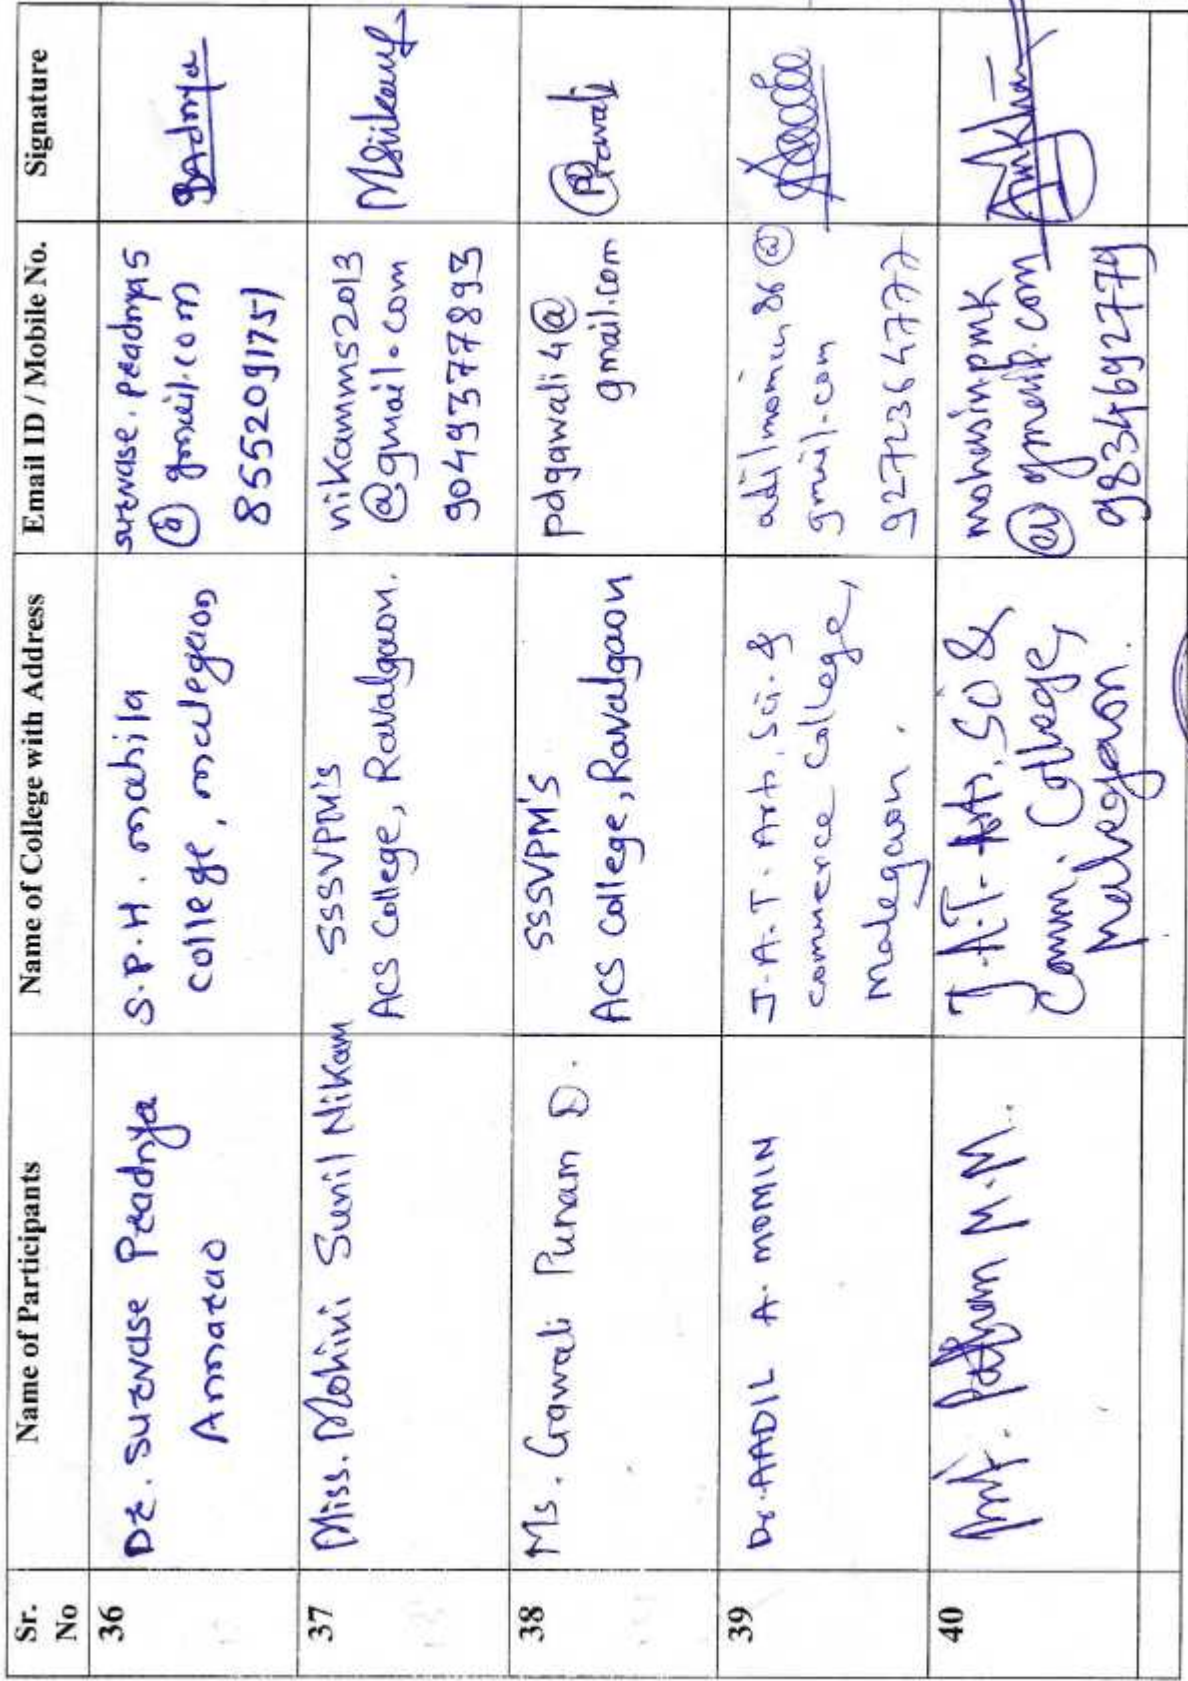 Sr. No
Name of Participants
Name of College with Address
Email ID / Mobile No.
Signature
36
Dr. Survase Pradnya
Annarao
S.P.H. mahila
college, malegaon
survase.pradnya5
@gmail.com
8552091751
37
Miss. Mohini Sunil Nikam
SSSVPM's
ACS College, Ravalgaon.
nikamms2013
@gmail.com
9049377893
38
Ms. Gawali Punam D.
SSSVPM's
ACS college, Ravalgaon
pdgawali4@
gmail.com
39
Dr. AADIL A. MOMIN
J.A.T. Arts, Sci. &
commerce College,
Malegaon.
adilmomin86@
gmail.com
9272364777
40
Prof. Pathan M.M.
J.A.T. Arts, Sci &
Comm. College,
Malegaon.
mohasinpmk
@gmail.com
9834692779